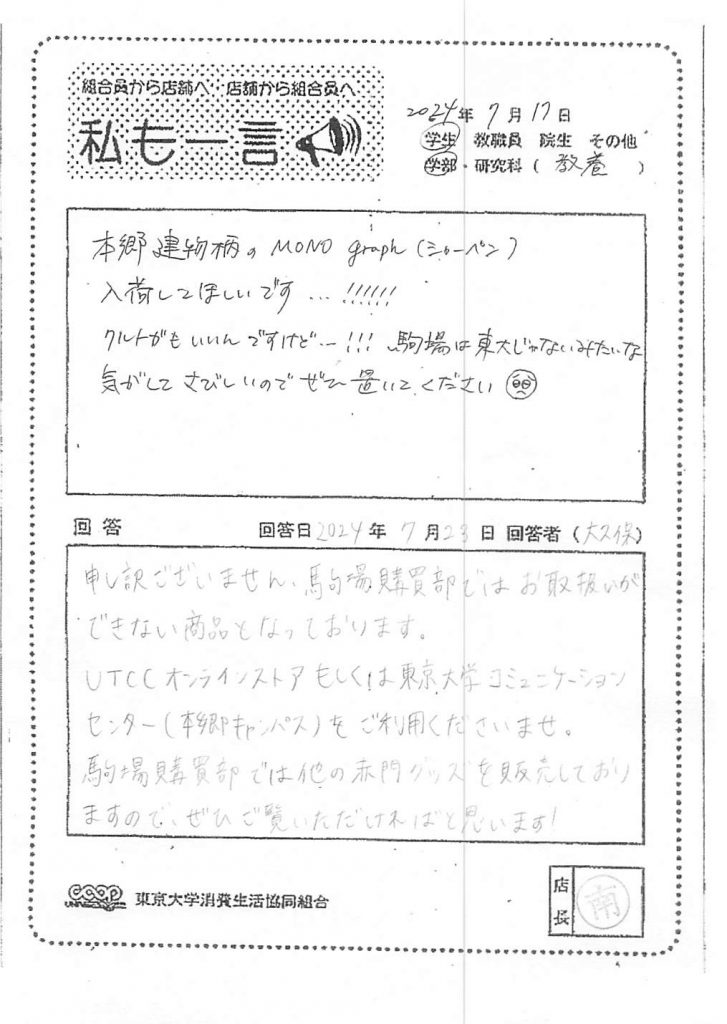 組合員から店舗へ…店舗から組合員へ
私も一言
2024年 7月17日
学生 教職員 院生 その他
学部・研究科（ 教養 ）
本郷建物柄の MONO graph（シャーペン）
入荷してほしいです…!!!!!!
クルトガもいいんですけど…!!! 駒場は東大じゃないみたいな
気がして さびしいので ぜひ 置いて ください
回答 回答日2024年 7月23日 回答者（大久保）
申し訳ございません、駒場購買部ではお取扱いが
できない商品となっております。
UTCCオンラインストアもしくは東京大学コミュニケーション
センター（本郷キャンパス）をご利用くださいませ。
駒場購買部では他の赤門グッズを販売しており
ますので、ぜひご覧いただければと思います!
COOP
UNIVERSITY
東京大学消費生活協同組合
店長
南